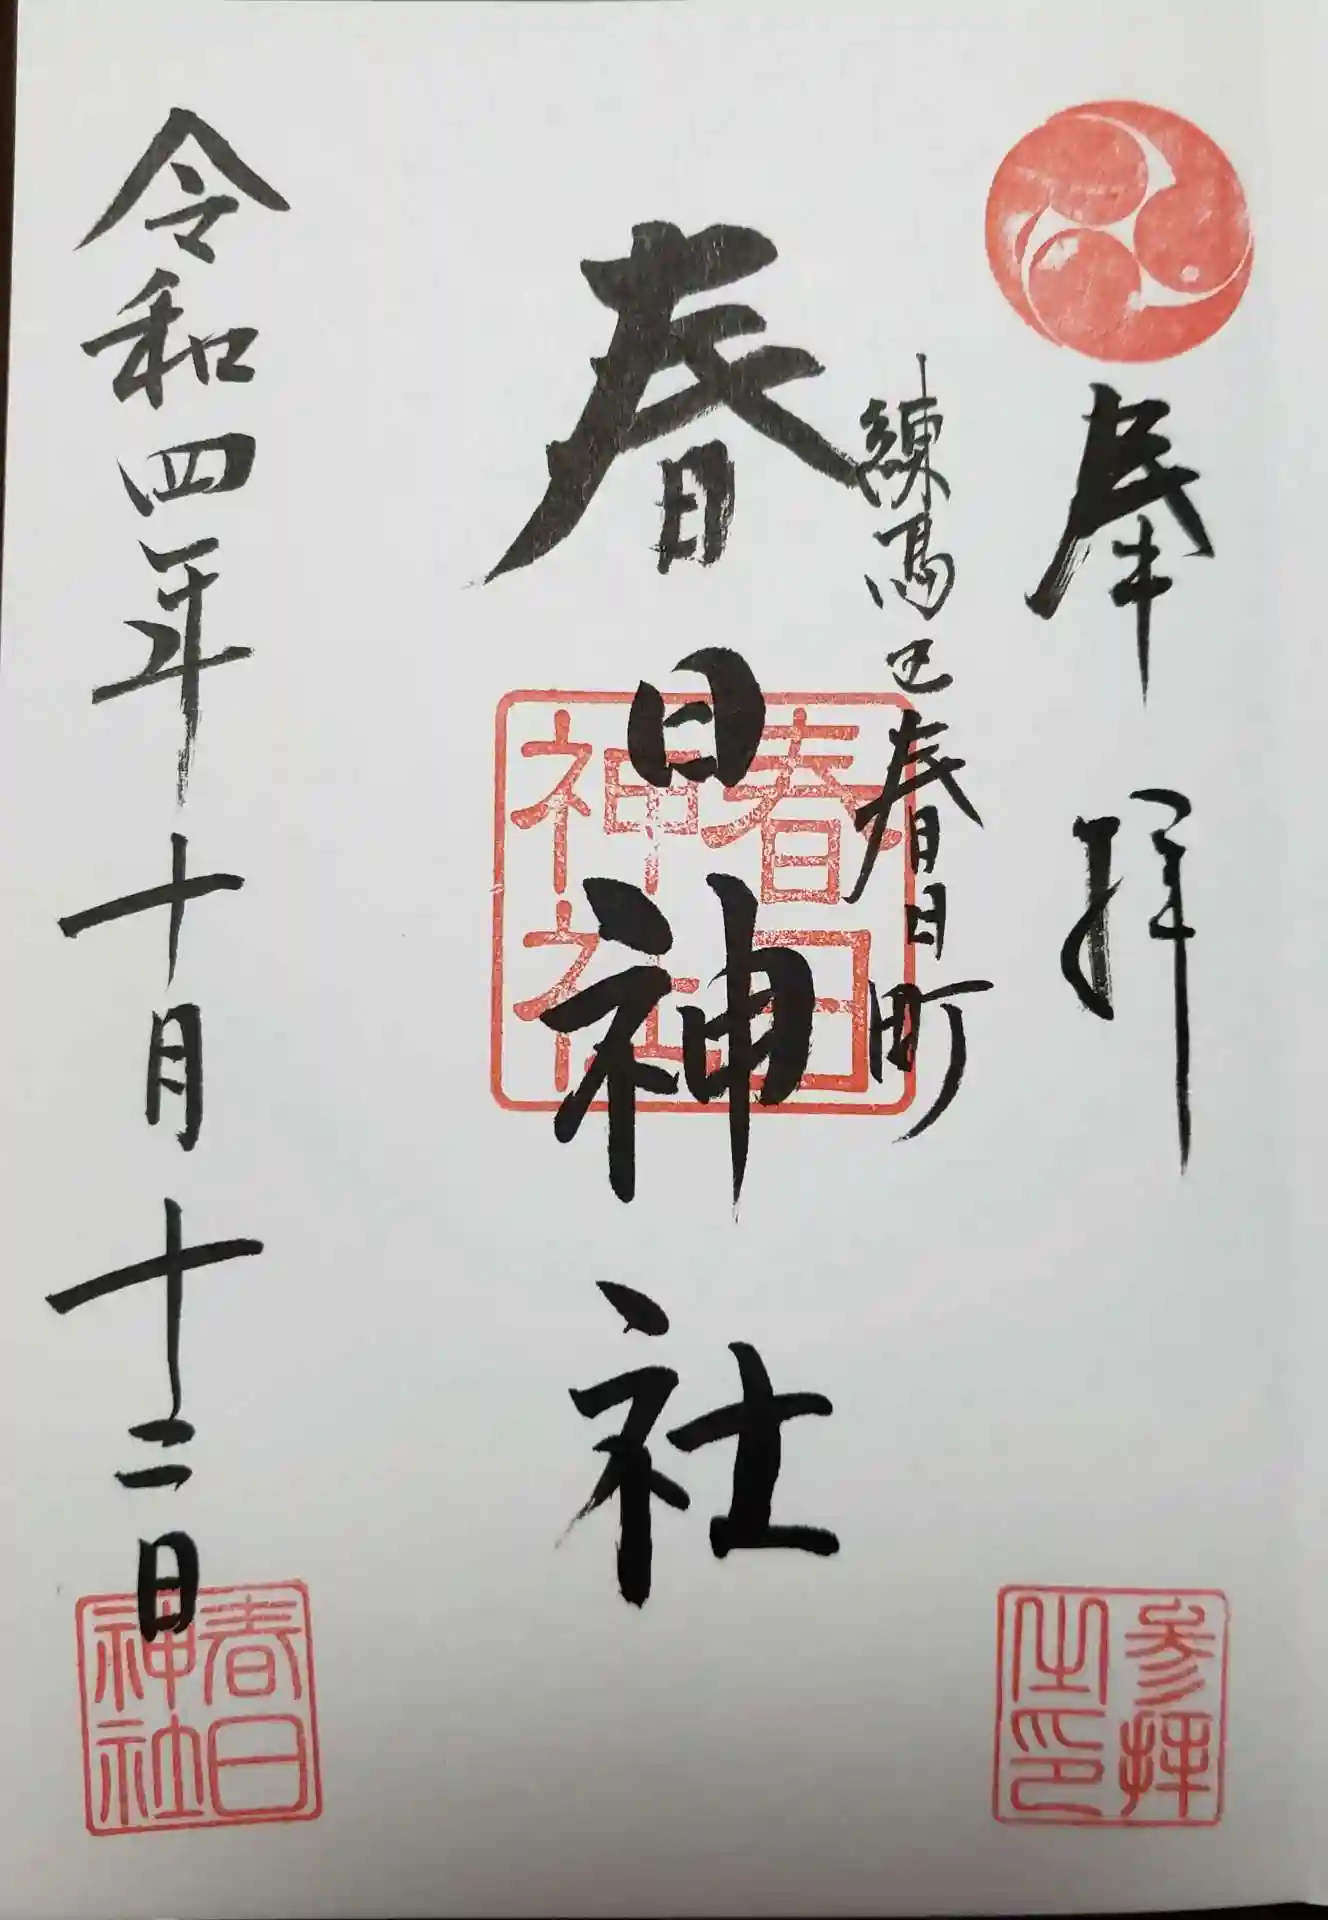 奉拝
練馬区春日町
春日神社
令和四年十月十二日
春日神社
参拝之印
春日神社